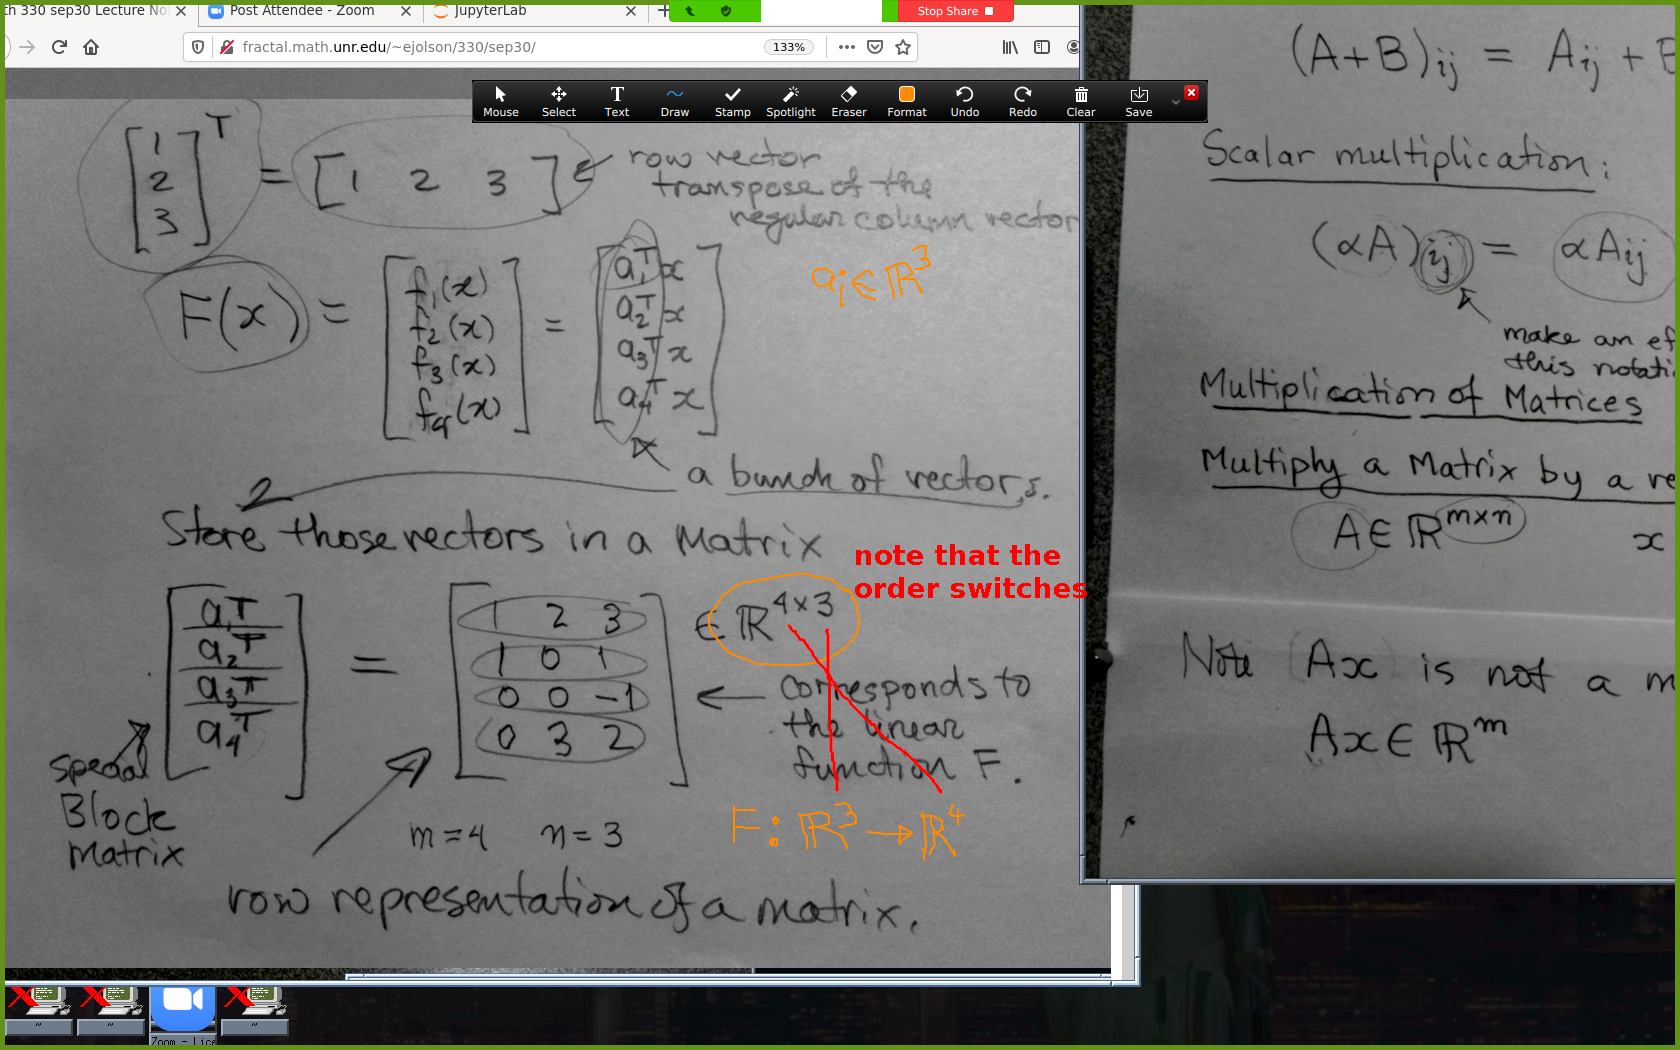 th 330 sep30 Lecture No
Post Attendee - Zoom
JupyterLab
Stop Share
fractal.math.unr.edu/~ejolson/330/sep30/
133%
Mouse Select Text Draw Stamp Spotlight Eraser Format Undo Redo Clear Save
[1 2 3]ᵀ = [1 2 3] ← row vector
transpose of the
regular column vector
F(x) = [f₁(x) f₂(x) f₃(x) f₄(x)] = [a₁ᵀx a₂ᵀx a₃ᵀx a₄ᵀx]
aᵢ ∈ ℝ³
a bunch of vectors.
Store those vectors in a Matrix
note that the
order switches
[a₁ᵀ a₂ᵀ a₃ᵀ a₄ᵀ] = [1 2 3
1 0 1
0 0 -1
0 3 2] ∈ ℝ⁴ˣ³
← corresponds to
the linear
function F.
special
Block
Matrix
m=4 n=3
F: ℝ³ → ℝ⁴
row representation of a matrix.
(A+B)ij = Aij + B
Scalar multiplication:
(αA)ij = αAij
make an ef
this notati
Multiplication of Matrices
Multiply a Matrix by a ve
A∈ℝᵐˣⁿ x
Note Ax is not a m
Ax∈ℝᵐ
~ ~ ~
Zoom - Lice